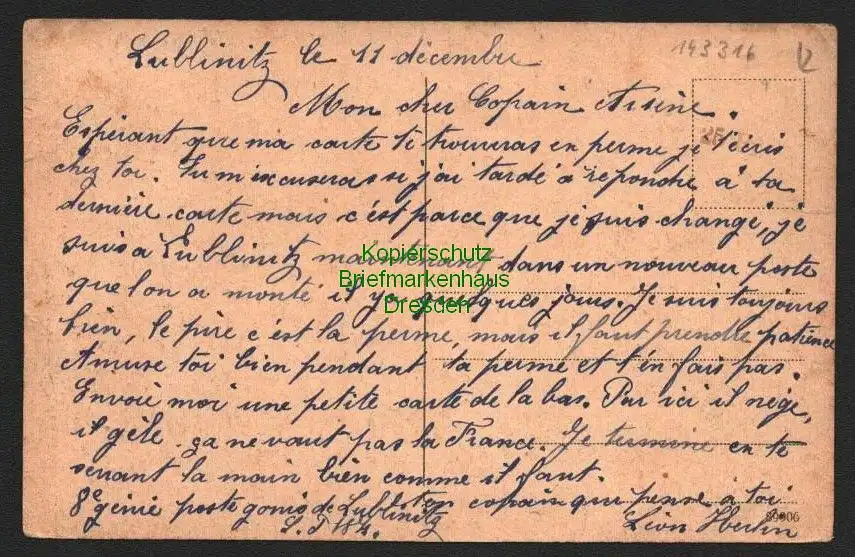 Lublinitz le 11 décembre
193316
Mon cher Copain Arsène.
Espérant que ma carte te trouveras en perme je t'écris
chez toi. Tu m'excuseras si j'ai tardé a repondre à ta
dernière carte mais c'est parce que je suis changé, je
suis a Lublinitz maintenant dans un nouveau poste
que l'on a monté il y a quelques jours. Je suis toujours
bien, le pire c'est la perme, mais il faut prendre patience
Amuse toi bien pendant ta perme et t'en fais pas.
Envoie moi une petite carte de la bas. Par ici il neige,
il gèle ça ne vaut pas la France. Je termine en te
serrant la main bien comme il faut.
Ton copain qui pense à toi
8e génie poste gonio de Lublinitz
S.P 184.
Léon
Kopierschutz
Briefmarkenhaus
Dresden